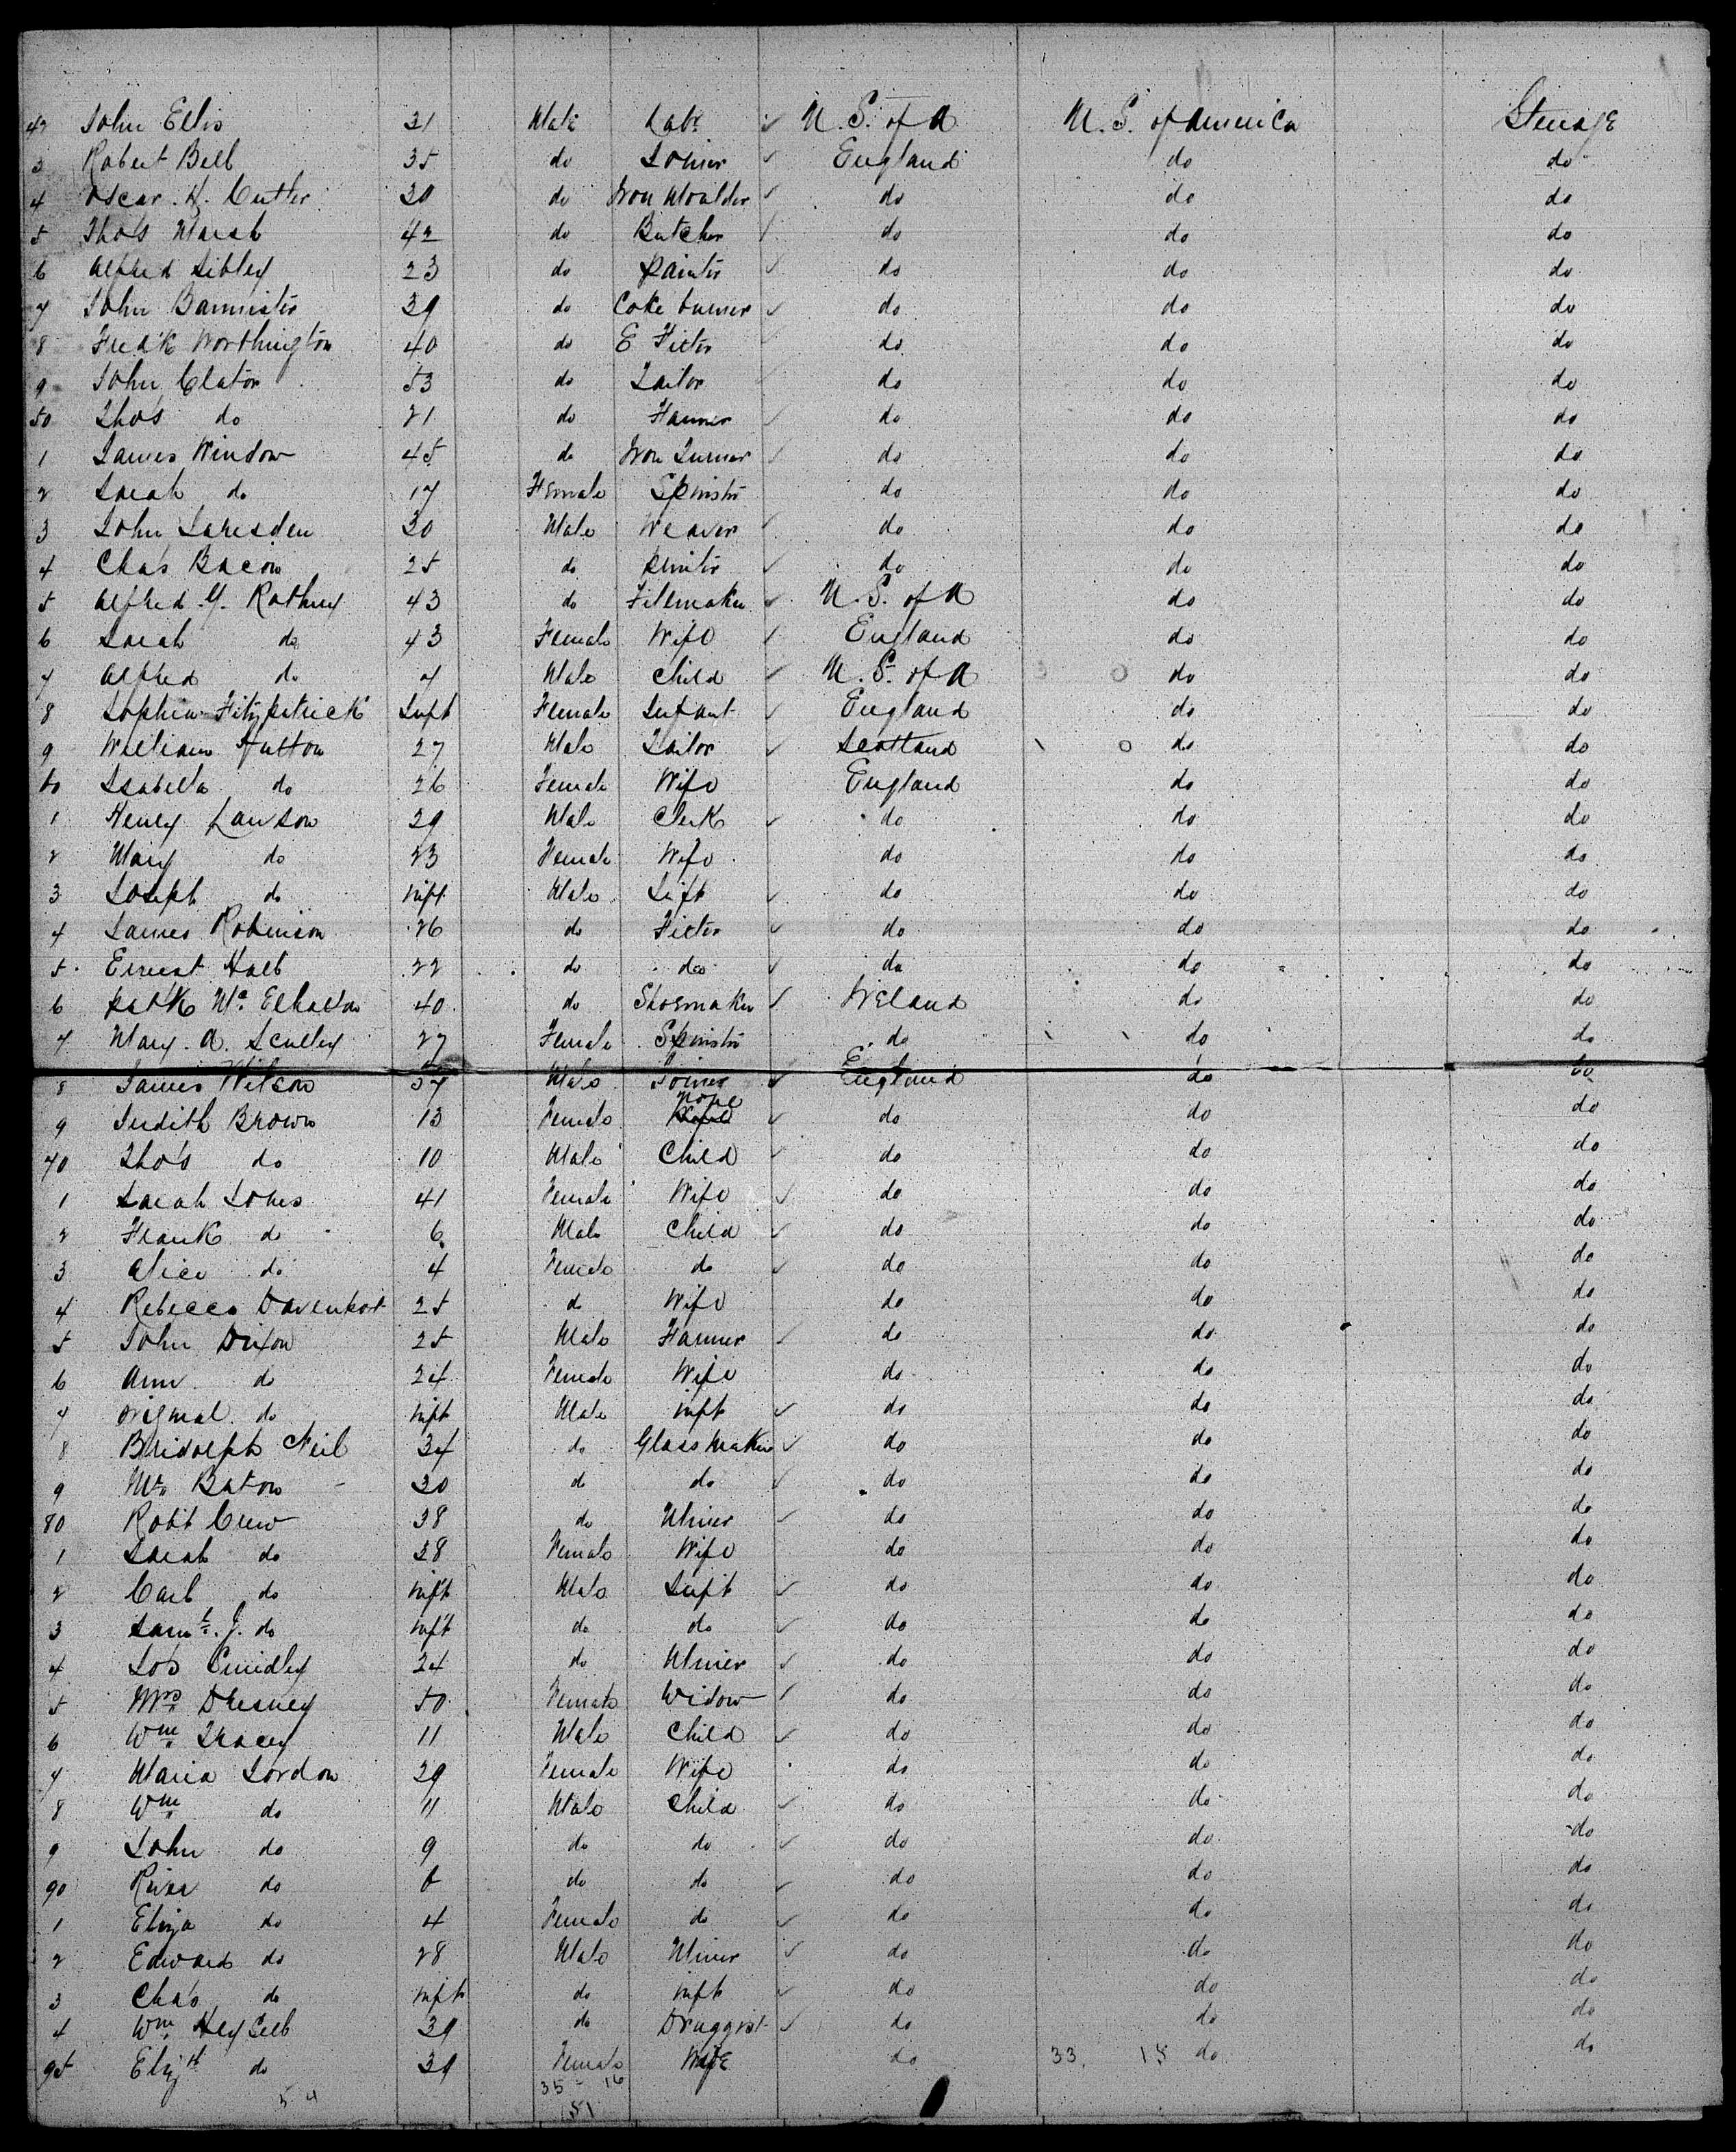 42 John Ellis 31 Male Labr U. S. of A U. S. of America Steerage
3 Robert Bell 35 do Joiner England do do
4 Oscar. H. Cutler 30 do Iron Moulder do do do
5 Thos Marsh 42 do Butcher do do do
6 Alfred Sibley 23 do Painter do do do
7 John Bannister 39 do Coke burner do do do
8 Fredk Worthington 40 do E Fitter do do do
9 John Clator 53 do Tailor do do do
50 Thos do 21 do Farmer do do do
1 James Window 45 do Iron Turner do do do
2 Sarah do 17 Female Spinstr do do do
3 John 30 Male Weaver do do do
4 Chas Bacon 25 do Printer do do do
5 Alfred .Y. 43 do Filemaker U. S. of A do do
6 Sarah do 43 Female Wife England do do
7 Alfred do 7 Male Child U. S. of A do do
8 Sophia Fitzpatrick Inft Female Infant England do do
9 William Hutton 27 Male Tailor Scotland do do
60 Isabella do 26 Female Wife England do do
1 Henry Lawson 29 Male Clerk do do do
2 Mary do 23 Female Wife do do do
3 Joseph do inft Male Inft do do do
4 James Robinson 26 do Fitter do do do
5 Ernest Hall 22 do do do do do
6 Patk Mc 40 do Shoemaker Ireland do do
7 Mary. A. Sculley 27 Female Spinstr do do do
8 James Wilson 37 Male Joiner England do do
9 Judith Brown 13 Female None do do do
70 Thos do 10 Male Child do do do
1 Sarah Jones 41 Female Wife do do do
2 Frank do 6 Male Child do do do
3 Alice do 4 Female do do do do
4 Rebecca Davenport 25 do Wife do do do
5 John Dixon 25 Male Farmer do do do
6 Ann do 24 Female Wife do do do
7 Original do inft Male inft do do do
8 Bridolph Neil 34 do Glass Maker do do do
9 Mr. Baton 30 do do do do do
80 Robt Crew 38 do Miner do do do
1 Sarah do 38 Female Wife do do do
2 Carl do inft Male Inft do do do
3 Saml. J. do inft do do do do do
4 Jos 24 do Miner do do do
5 Mrs. 50 Female Widow do do do
6 Wm. Tracey 11 Male Child do do do
7 Maria Jordon 29 Female Wife do do do
8 Wm. do 11 Male Child do do do
9 John do 9 do do do do do
90 do 6 do do do do do
1 Eliza do 4 Female do do do do
2 Edward do 28 Male Miner do do do
3 Chas do inft do inft do do do
4 Wm. 39 do Druggist do do do
95 Elizth do 39 Female Wife do 33 18 do do
54 35 - 16
51